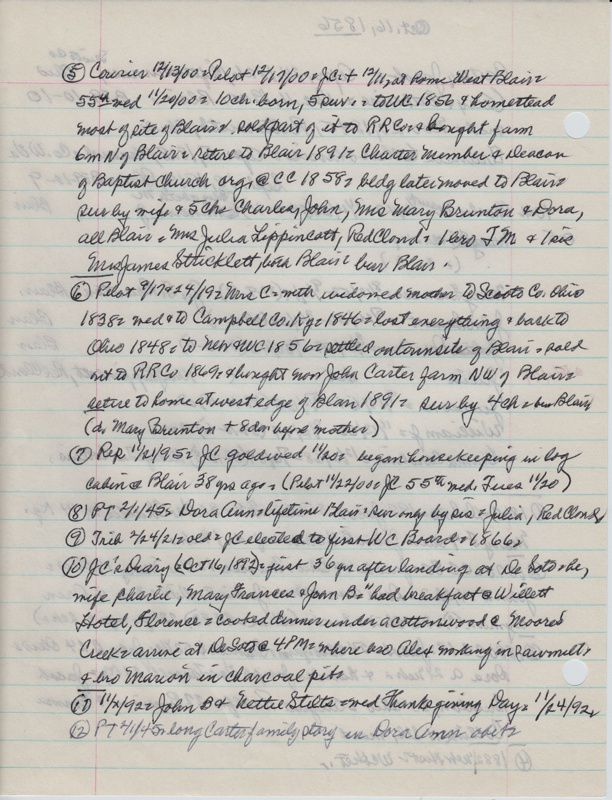 Oct. 16, 1856
⑤ Courier 12/13/00 = Pilot 12/17/00 = JC + 12/11, at home West Blair =
55th wed 11/20/00 = 10 ch. born, 5 surv. = to WC 1856 & homestead
most of site of Blair & sold part of it to RR Co & bought farm
6m N of Blair = retire to Blair 1891 = Charter Member & Deacon
of Baptist Church org. @ CC 1858 = bldg later moved to Blair =
sur by wife & 5 ch = Charles, John, Mrs Mary Brunton & Dora,
all Blair = Mrs Julia Lippincott, Red Cloud = 1 bro J M & 1 sis
Mrs James Stricklett, both Blair = bur Blair.
⑥ Pilot 9/17 & 24/19 = Mrs C = with widowed mother to Scioto Co. Ohio
1838 = wed & to Campbell Co. Ky = 1846 = lost everything & back to
Ohio 1848 = to Neb & WC 1856 = settled on townsite of Blair = sold
out to RR Co 1869 = & bought now John Carter farm NW of Blair =
retire to home at west edge of Blair 1891 = sur by 4 ch = bur Blair
(d. Mary Brunton + 8 da. before mother)
⑦ Rep 11/21/95 = JC gold wed 11/20 = began housekeeping in log
cabin @ Blair 38 yrs ago = (Pilot 11/22/00 = JC 55th wed. Tues 11/20)
⑧ PT 2/1/45 = Dora Ann = lifetime Blair = sur only by sis = Julia, Red Cloud,
⑨ Trib 2/24/21 = old = JC elected to first WC Board = 1866,
⑩ JC's Diary (Oct 16, 1892) = just 36 yr after landing at De Soto = he,
wife Charlie, Mary Frances & John B = "had breakfast @ Willett
Hotel, Florence = cooked dinner under a cottonwood @ Moores
Creek = arrive at DeSoto @ 4 PM = where bro Alex working in sawmill =
& bro Marion in charcoal pits
⑪ 11/2/92 = John B & Nettie Stilts = wed Thanksgiving Day = 11/24/92,
⑫ PT 2/1/45 = long Carter family story in Dora Ann obit =